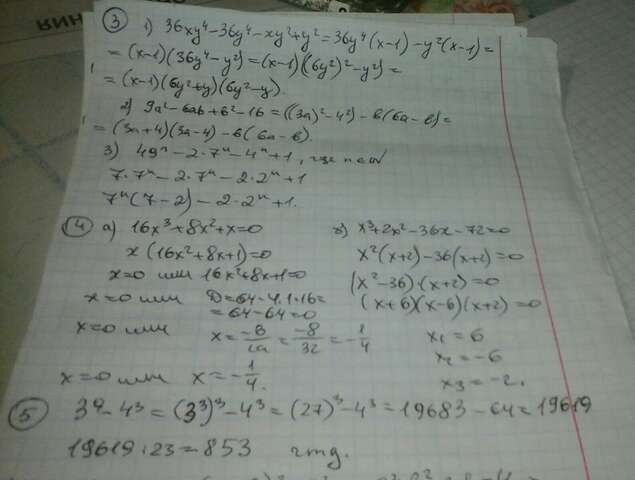 ③ 1) 36xy⁴-36y⁴-xy²+y²=36y⁴(x-1)-y²(x-1)=
=(x-1)(36y⁴-y²)=(x-1)((6y²)²-y²)=
=(x-1)(6y²+y)(6y²-y).
2) 9a²-6ab+b²-16=((3a)²-4²)-b(6a-b)=
=(3a+4)(3a-4)-b(6a-b).
3) 49ⁿ-2·7ⁿ-4ⁿ+1, где n∈N
7·7ⁿ-2·7ⁿ-2·2ⁿ+1
7ⁿ(7-2)-2·2ⁿ+1.
④ а) 16x³+8x²+x=0
x(16x²+8x+1)=0
x=0 или 16x²+8x+1=0
x=0 или D=64-4·1·16=
=64-64=0
x=0 или x=-B/2a=-8/32=-1/4
x=0 или x=-1/4.
б) x³+2x²-36x-72=0
x²(x+2)-36(x+2)=0
(x²-36)·(x+2)=0
(x+6)(x-6)(x+2)=0
x₁=6
x₂=-6
x₃=-2.
⑤ 3⁹-4³=(3³)³-4³=(27)³-4³=19683-64=19619
19619:23=853 чтд.